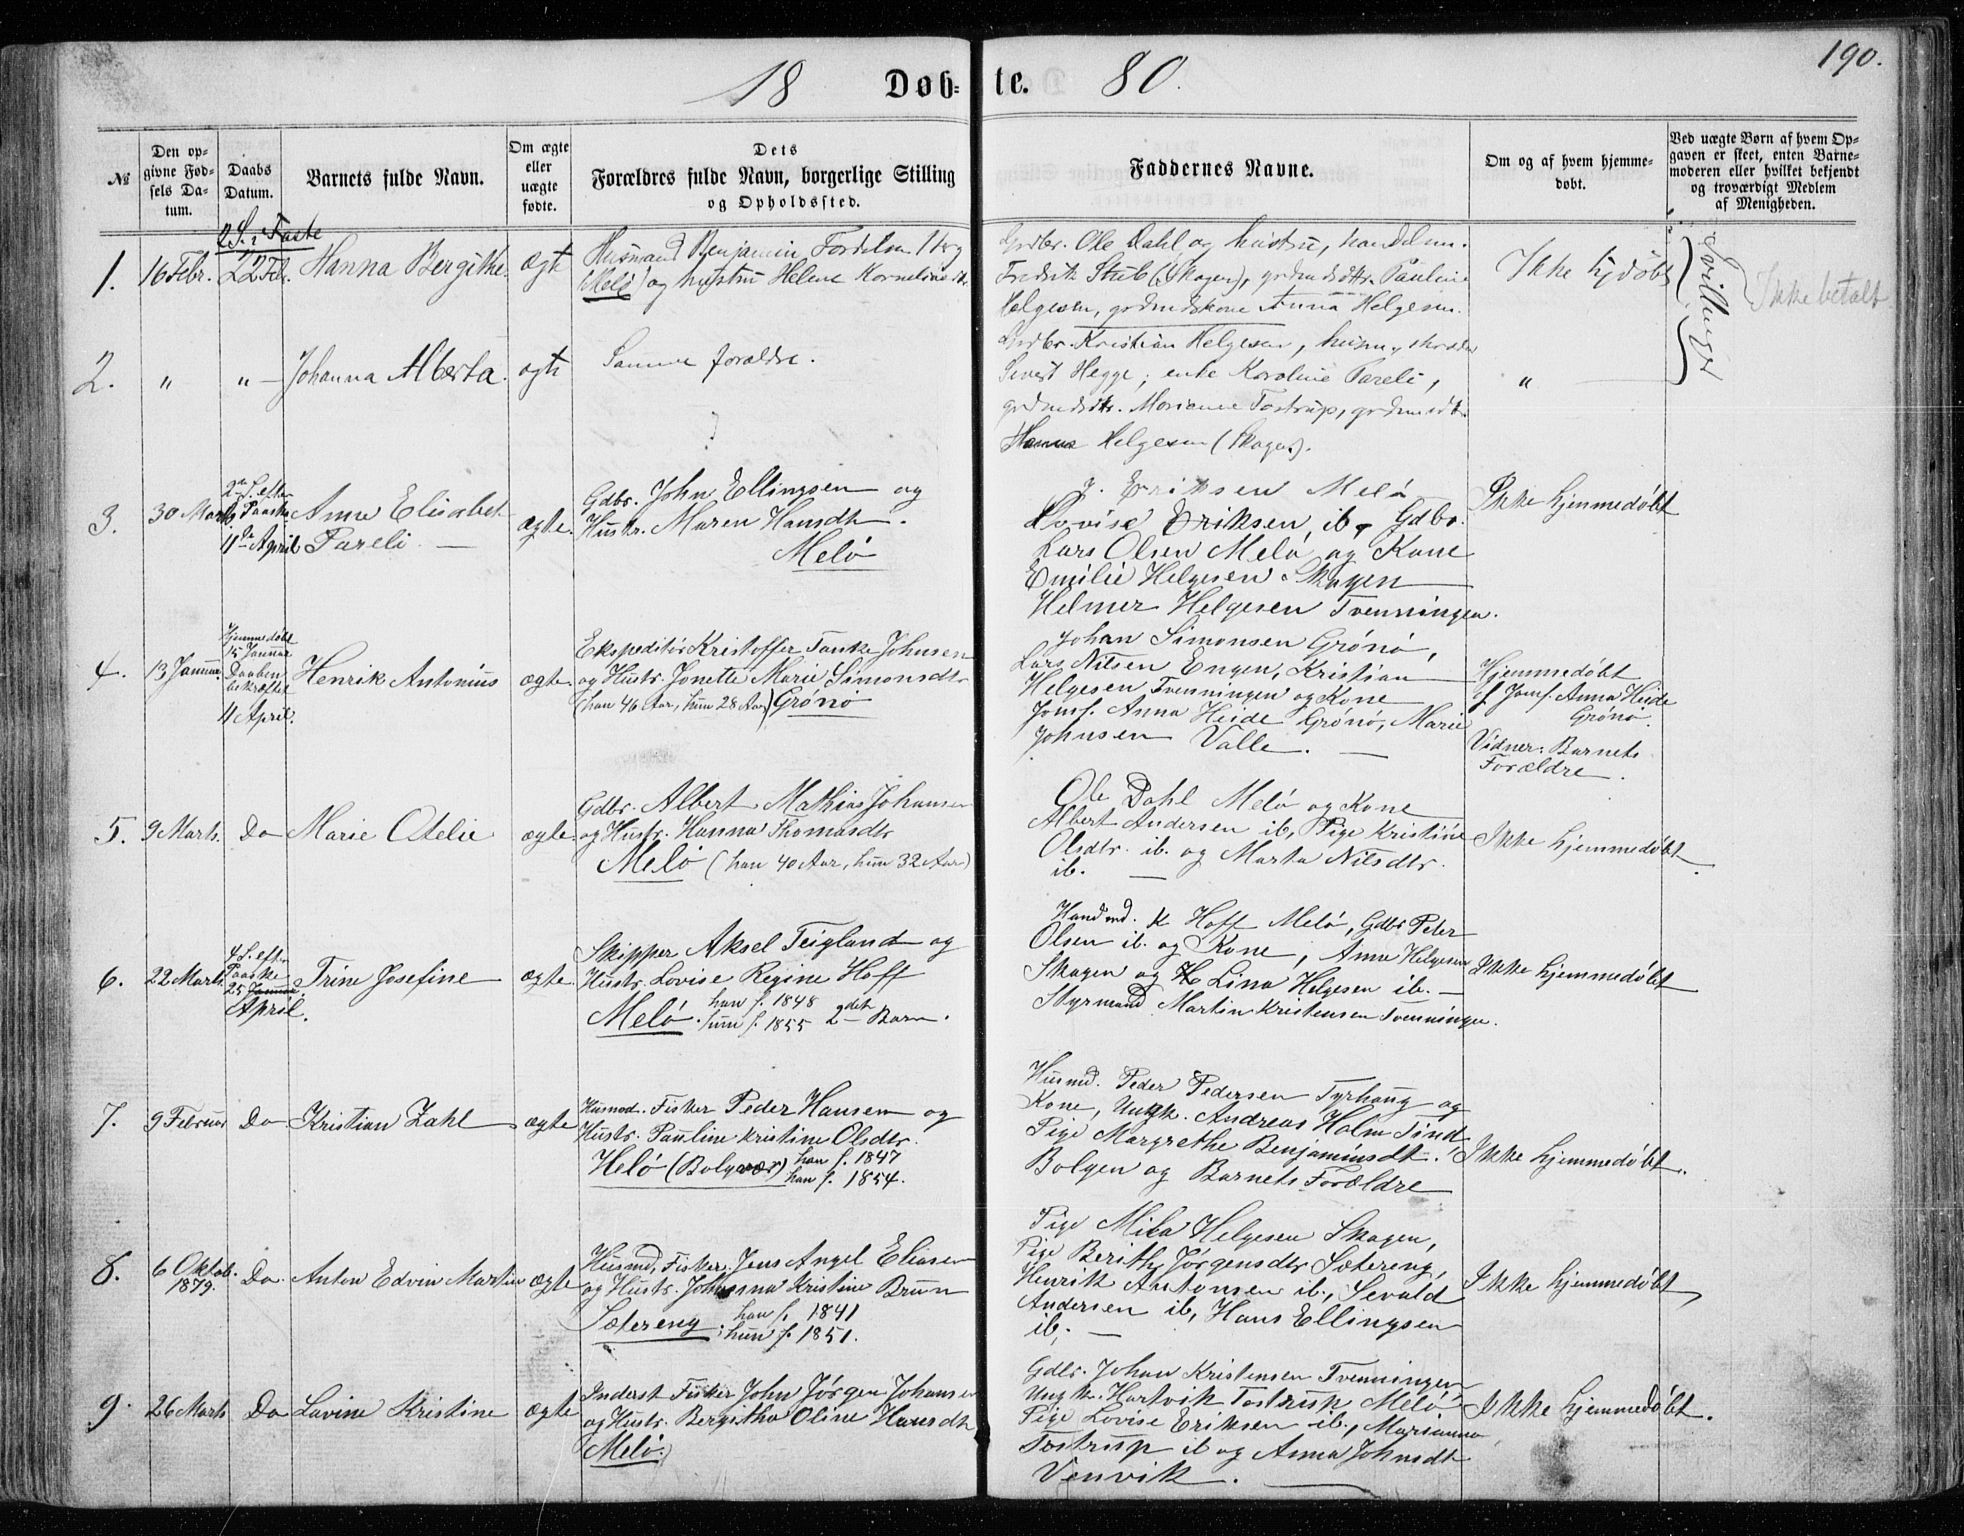 190.
18 Døb= te. 80.
№
Den op=
givne Fød=
sels Da=
tum.
Daabs
Datum.
Barnets fulde Navn.
Om ægte
eller
uægte
fødte.
Dets
Forældres fulde Navn, borgerlige Stilling
og Opholdssted.
Faddernes Navne.
Om og af hvem hjemme=
døbt.
Ved uægte Børn af hvem Op=
gaven er skeet, enten Barne=
moderen eller hvilket bekjendt
og troværdigt Medlem
af Menigheden.
1.
16 Febr.
2 S. i Faste
22 Feb.
Hanna Bergithe.
ægt
Husmand Benjamin
(Melø) og hustru Helene
Gdbr. Ole Dahl og hustru,
Fredrik Stub (Skagen), Pauline
Helgesen, Anna Helgesen.
Ikke hjdøbt
Tvillinger
Ikke betalt
2.
"
" —
Johanna Alberta.
ægte
Samme forældre.
Gdbr. Kristian Helgesen,
Sivert Hegge, enke Karoline Pareli,
Marianne Tostrup,
Hanna Helgesen (Skagen).
"
3.
30 Marts
2den S. efter
Paaske
11te April
Anne Elisabet
Pareli. —
ægte.
Gdbr. John Ellingsen og
Hustr. Maren Hansdtr.
Melø
J. Eriksen Melø
Lovise Eriksen ib., Gdbr.
Lars Olsen Melø og Kone
Emilie Helgesen Skagen
Helmer Helgesen Tvenningen.
Ikke hjemmedøbt
4.
13 Januar.
Hjemmedøbt
15 Januar
Daaben
bekræftet
11 April.
Henrik Antonius
ægte.
Ekspeditør Kristoffer Tanke Johnsen
og Hustr. Jonette Marie Simonsdtr
(han 46 Aar, hun 28 Aar) Grønø
Johan Simonsen Grønø,
Lars Nilsen Engen, Kristian
Helgesen Tvenningen og Kone
Jomf. Anna Heide Grønø, Marie
Johnsen Valle. —
Hjemmedøbt
af Jomf. Anna Heide
Grønø.
Vidner: Barnets
Forældre.
5.
9 Marts.
Do
Marie Otelie
ægte.
Gdbr. Albert Mathias Johansen
og Hustr. Hanna Thomasdtr
Melø (han 40 Aar, hun 32 Aar)
Ole Dahl Melø og Kone
Albert Andersen ib., Pige Kristine
Olsdtr. ib. og Marta Nilsdtr.
ib. —
Ikke hjemmedøbt.
6.
22 Marts.
4 S. efter
Paaske
25 Januar
April.
Trine Josefine
ægte.
Skipper Aksel Teigland og
Hustr. Lovise Regine Hoff
Melø. han f. 1848
hun f. 1855 2det Barn.
Handmd. K Hoff Melø, Gdbr Peter
Olsen ib. og Kone, Anna Helgesen
Skagen og Lina Helgesen ib. —
Styrmand Martin Kristensen Tvenningen.
Ikke hjemmedøbt
7.
9 Februar
Do
Kristian Zahl
ægte
Husmd. Fisker Peder Hansen og
Hustr. Pauline Kristine Olsdtr.
Helø (Bolgvær) han f. 1847
han f. 1854.
Husmd. Peder Pedersen Tyrhaug og
Kone, Ungk. Andreas Holm Tind
Pige Margrethe Benjaminsdt.
Bolgen og Barnets Forældre
Ikke hjemmedøbt.
8.
6 Oktob.
1879.
Do
Anton Edvin Martin
ægte
Husmd, Fisker Jens Angel Eliasen
og Hustr. Johanna Kristine Brun
Sætereng; han f. 1841
hun f. 1851.
Pige Mila Helgesen Skagen,
Pige Berithe Jørgensdtr Sætereng,
Henrik Antonsen ib., Sevald
Andersen ib, Hans Ellingsen
ib. —
Ikke hjemmedøbt,
9.
26 Marts
Do
Lavine Kristine
ægte
Inderst Fisker John Jørgen Johansen
og Hustr. Bergitha Oline Hansdtr
Melø.
Gdbr. Johan Kristensen Tvenningen
Ungk. Hartvik Tostrup Melø,
Pige Lovise Eriksen ib., Marianna
Tostrup ib og Anna Johnsdtr
Venvik.
Ikke hjemmedøbt.